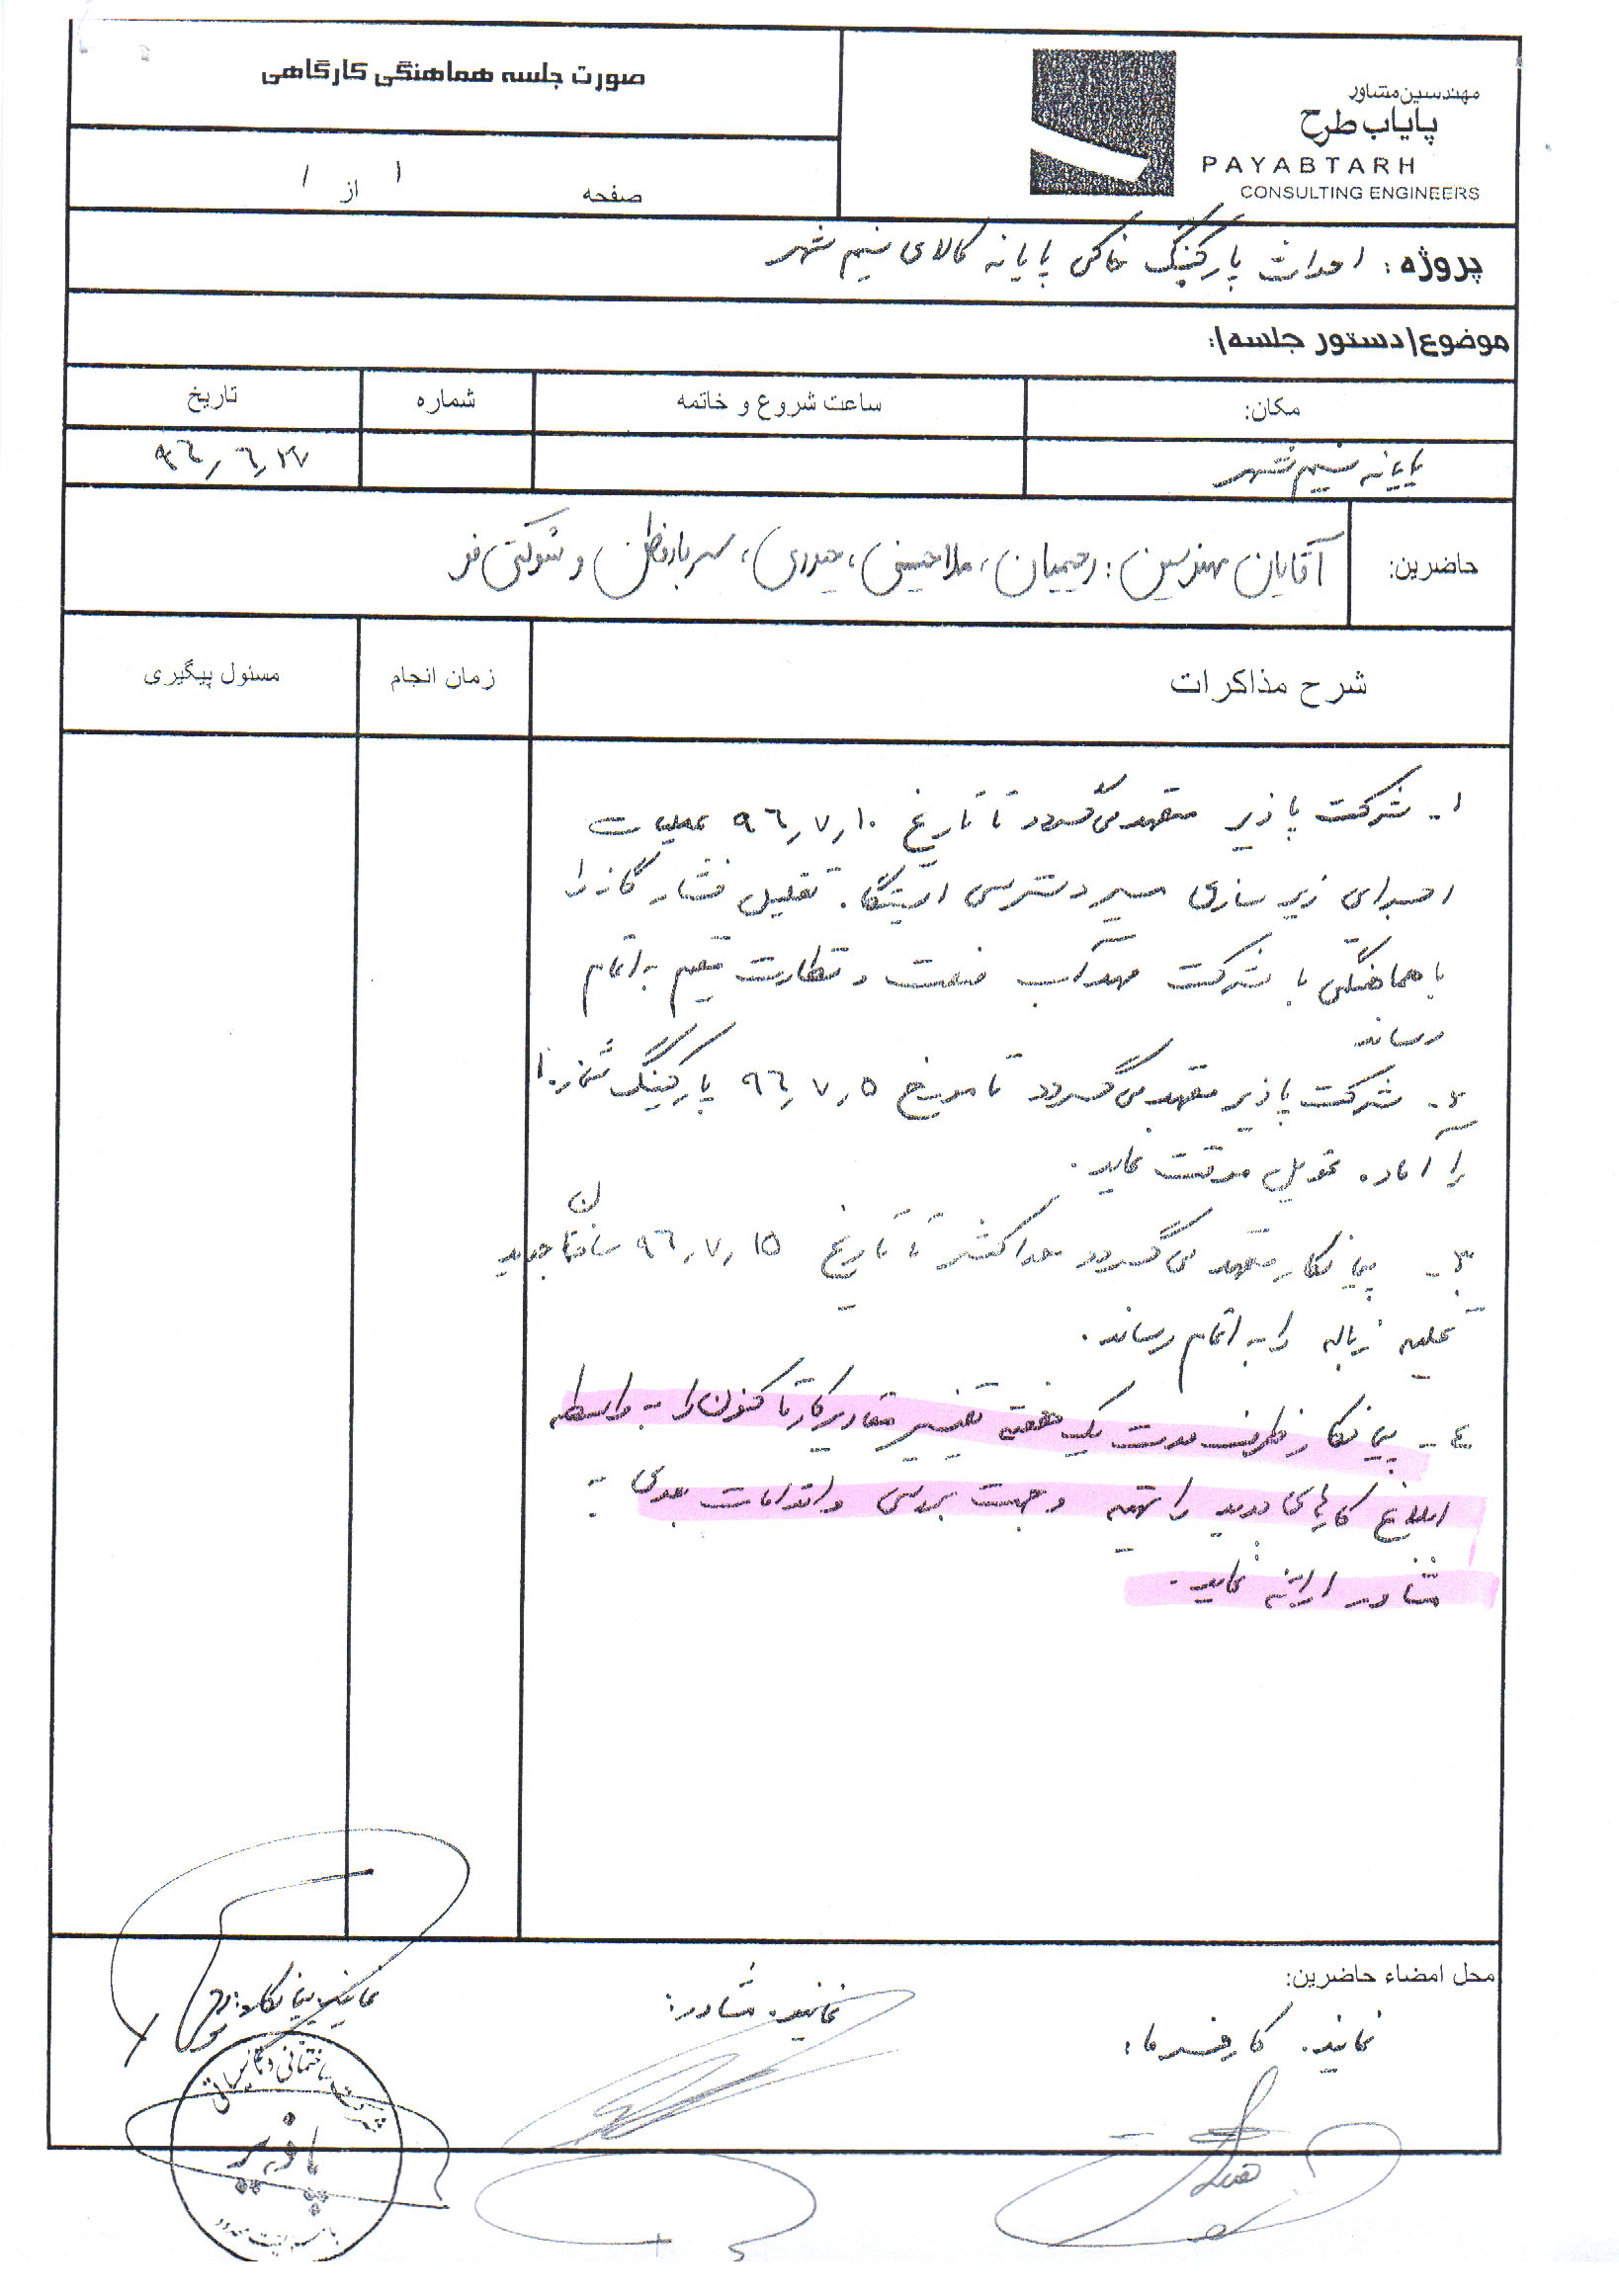 صورت جلسه هماهنگی کارگاهی
مهندسین مشاور
پایاب طرح
PAYABTARH
CONSULTING ENGINEERS
صفحه ۱ از ۱
پروژه: احداث پارکینگ خاکی پایانه کالای نسیم شهر
موضوع(دستور جلسه):
مکان: ساعت شروع و خاتمه شماره تاریخ
پایانه نسیم شهر ۹۶٫۶٫۲۷
حاضرین: آقایان مهندسین: رحیمیان، ملاحسینی، حیدری، سربازوطن و شوکتی فر
شرح مذاکرات زمان انجام مسئول پیگیری
۱- شرکت پاذیر متعهد می‌گردد تا تاریخ ۹۶٫۷٫۱۰ عملیات
اجرای زیرسازی مسیر دسترسی ایستگاه تقلیل فشار گاز را
با هماهنگی با شرکت مهدآب صنعت و نظارت مقیم به اتمام
رساند
۲- شرکت پاذیر متعهد می‌گردد تا مورخ ۹۶٫۷٫۵ پارکینگ شماره ۱
را آماده تحویل موقت نماید.
۳- پیمانکار متعهد می‌گردد حداکثر تا تاریخ ۹۶٫۷٫۱۵ ساختمان جدید
تخلیه زباله را به اتمام رساند.
٤- پیمانکار ظرف مدت یک هفته تغییر مقادیر کار تاکنون را به واسطه
ابلاغ کارهای جدید را تهیه و جهت بررسی و اقدامات بعدی به
مشاور ارائه نماید.
محل امضاء حاضرین:
نماینده کارفرما:
نماینده مشاور:
نماینده پیمانکار:
ساختمانی و تاسیساتی
پاذیر
با مسئولیت محدود